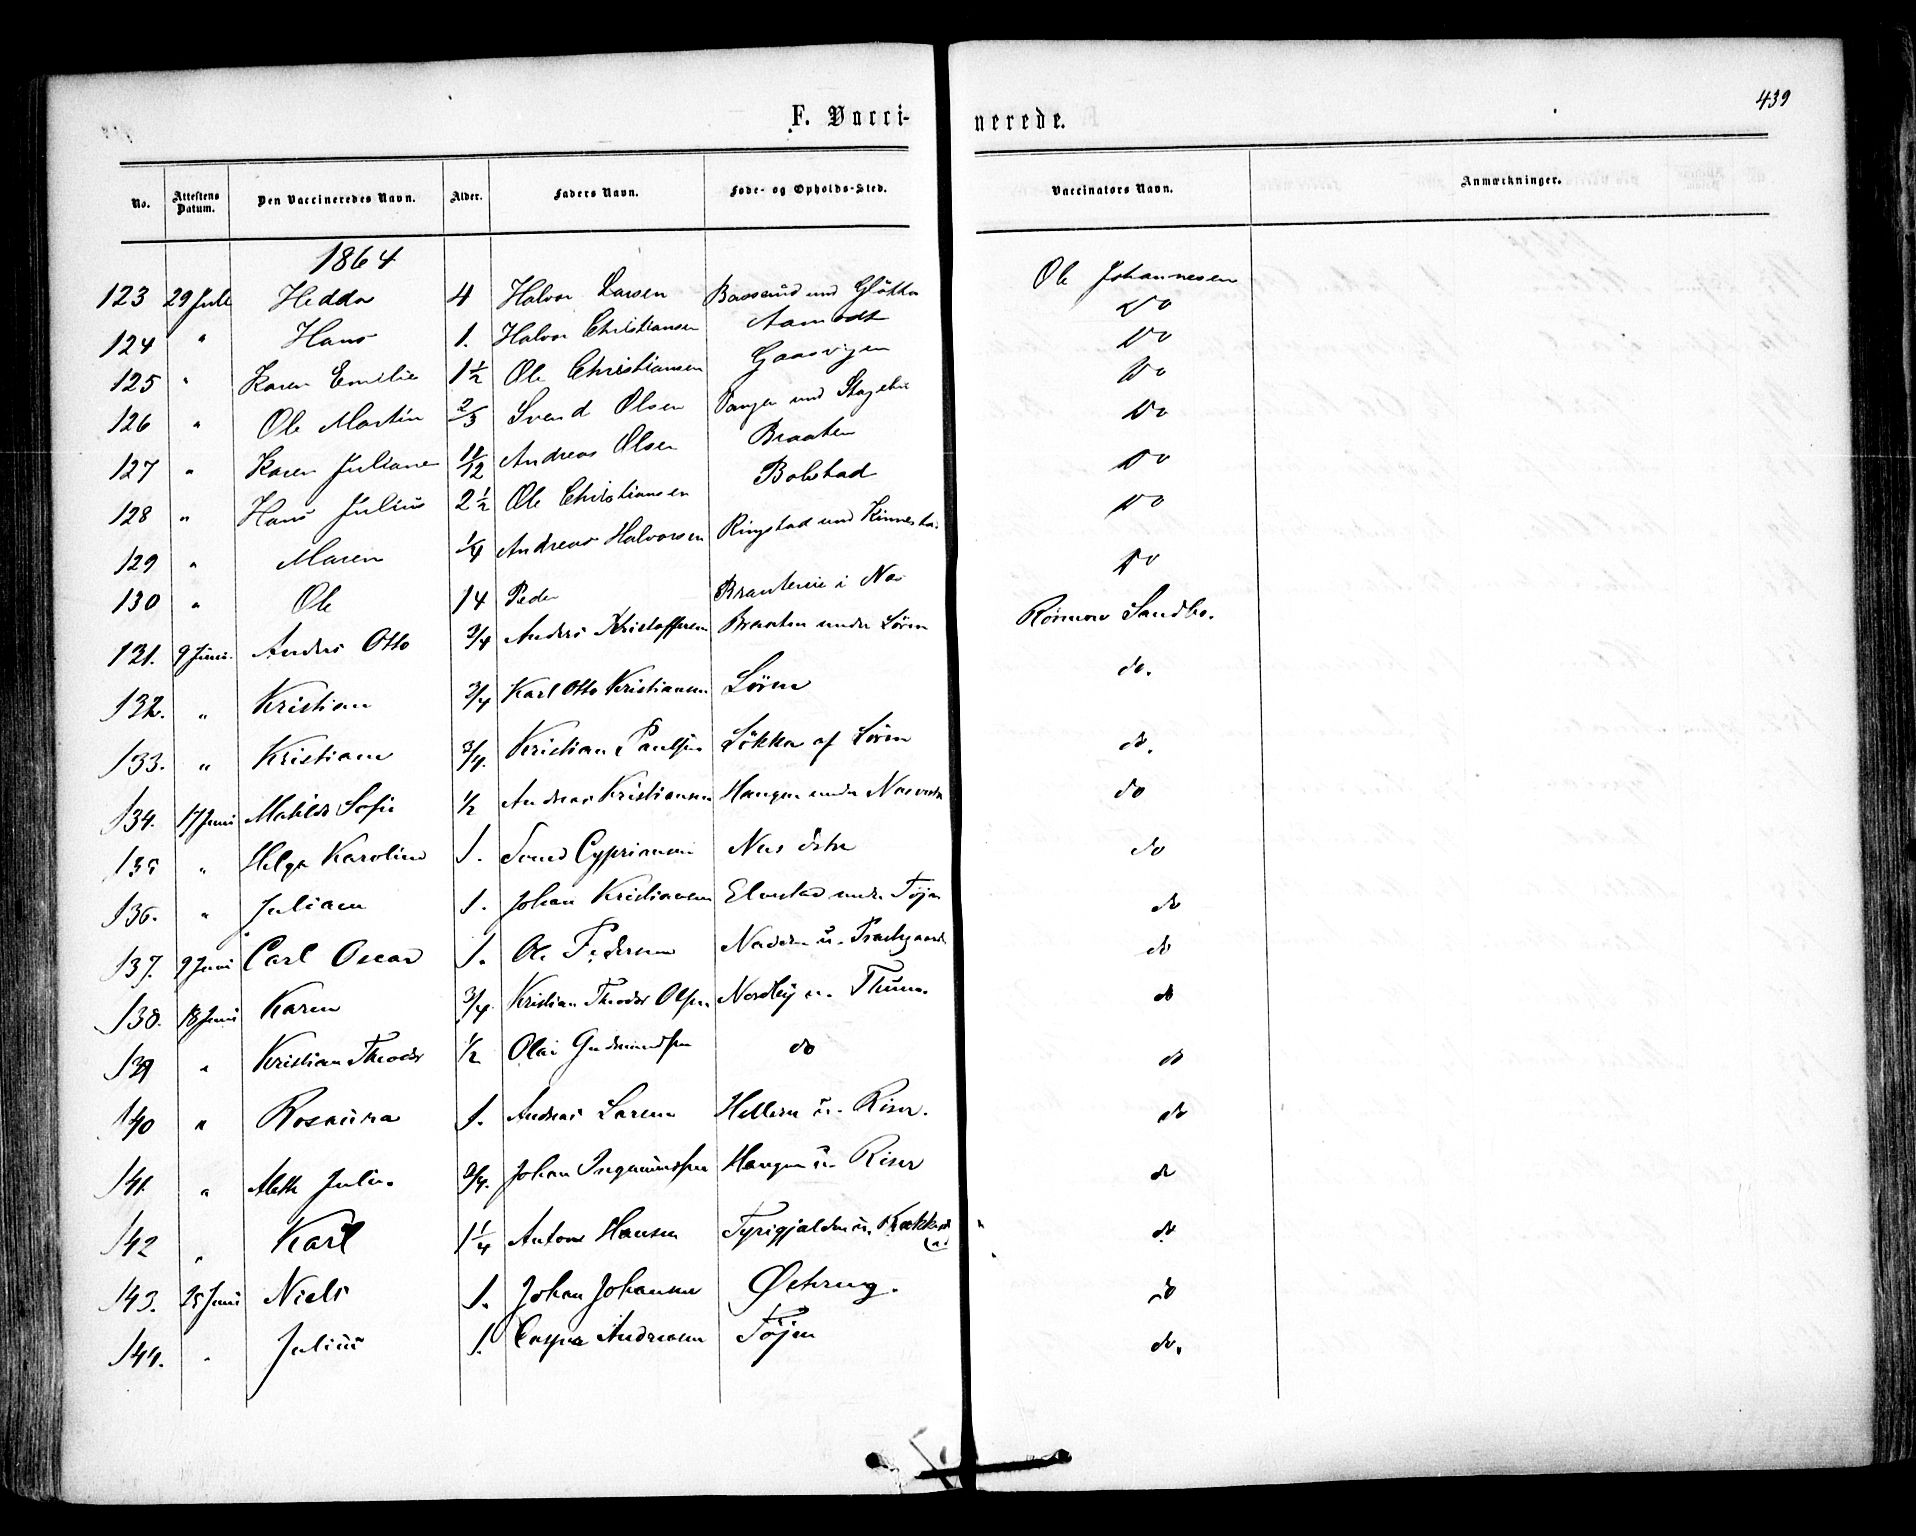 439
F. Vacci- nerede.
No. Attestens Datum. Den Vaccineredes Navn. Alder. Faders Navn. Føde- og Opholds-Sted. Vaccinators Navn. Anmærkninger.
1864
123 29 Juli Hedda 4 Halvor Larsen Basserud und Gløkka Ole Johannesen
124 " Hans 1. Halvor Christiansen Aamodt Do
125 " Karen Emilie 1 1/2 Ole Christiansen Gaasvigen Do
126 " Ole Martin 2/3 Svend Olsen Tangen und Do
127 " Karen Juliane 11/12 Andreas Olsen Braaten Do
128 " Hans Julius 2 1/2 Ole Christiansen Bolstad Do
129 " Maren 1/4 Andreas Halvorsen Ringstad und Do
130 " Ole 14 Peder i Nes Do
131. 9 Juni. Anders Otto 3/4 Anders Kristoffersen Braaten under Lören Rømow Sandbo.
132. " Kristian 3/4 Karl Otto Kristiansen Lören do.
133. " Kristian 3/4. Kristian Paulsen Løkka af Lören do.
134. 17 Juni Mathilde Sofie 1/2 Andreas Kristiansen Haugen under Nes do
135 " Helga Karoline 1. Svend Cypriansen Nes östre do
136. " Julian 1. Johan Kristiansen Elvestad under Töjen do
137. 9 Juni Carl Oscar 1. Ole Pedersen u. do
138. 18 Juni Karen 3/4. Kristian Theodor Olsen Nordby u. Thune. do
139 " Kristian Theodor 1/2 Olai Gudmundsen do do
140 " Rosaura 1. Andreas Larsen Helleren u. Riser. do
141. " Aleth Julie. 3/4. Johan Ingmundsen Haugen u. Riser do
142 " Karl 1 1/4 Anton Hansen Tyrigjelden u. do
143. 25 Juni Niels 1. Johan Johansen Østeng. do
144. " Julius 1. Casper Andreasen Töjen do.